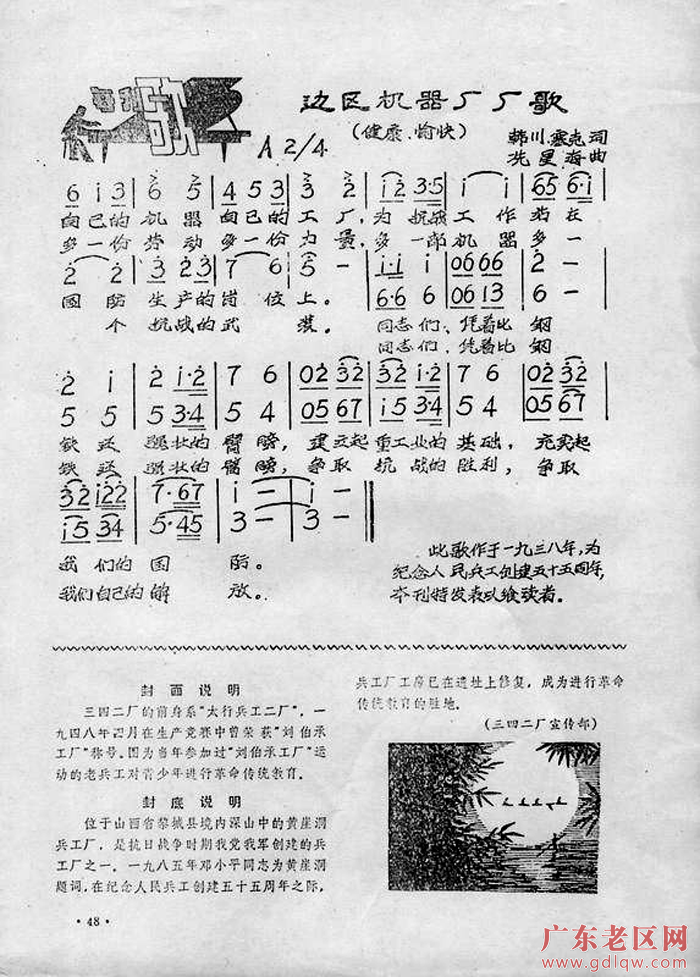 每月歌
边区机器厂厂歌
（健康、愉快）
A 2/4
韩川、塞克词
冼星海曲
6 i 3 | 6 5 | 4 5 3 | 3 2 | i 2 3·5 | i i | 65 6·i
自己的机器自己的工厂，为抗战工作站在
多一份劳动多一份力量，多一部机器多一
2 2 | 3 2 3 | 7 6 | 5 — | i·i i | 06 66 | 2 —
6·6 6 | 06 13 | 6 —
国防生产的岗位上。同志们、凭着比钢
个抗战的武装。同志们、凭着比钢
2 i | 2 i·2 | 7 6 | 02 32 | 32 i·2 | 7 6 | 02 32
5 5 | 5 3·4 | 5 4 | 05 67 | i5 3·4 | 5 4 | 05 67
铁还强壮的臂膀，建立起重工业的基础，充实起
铁还强壮的臂膀，争取抗战的胜利，争取
32 i22 | 7·67 | i — | i —
i5 34 | 5·45 | 3 — | 3 —
我们的国防。
我们自己的解放。
此歌作于一九三八年，为
纪念人民兵工创建五十五周年，
本刊特发表以飨读者。
封面说明
三四二厂的前身系“太行兵工二厂”，一
九四八年四月在生产竞赛中曾荣获“刘伯承
工厂”称号。图为当年参加过“刘伯承工厂”运
动的老兵工对青少年进行革命传统教育。
封底说明
位于山西省黎城县境内深山中的黄崖洞
兵工厂，是抗日战争时期我党我军创建的兵
工厂之一。一九八五年邓小平同志为黄崖洞
题词，在纪念人民兵工创建五十五周年之际，
兵工厂工房已在遗址上修复，成为进行革命
传统教育的胜地。
（三四二厂宣传部）
·48·
广东老区网
www.gdlqw.com